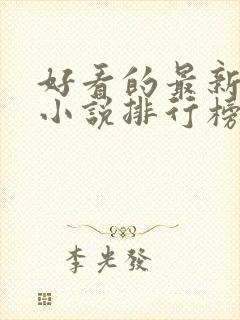 好看的最新
小说排行榜
李光發